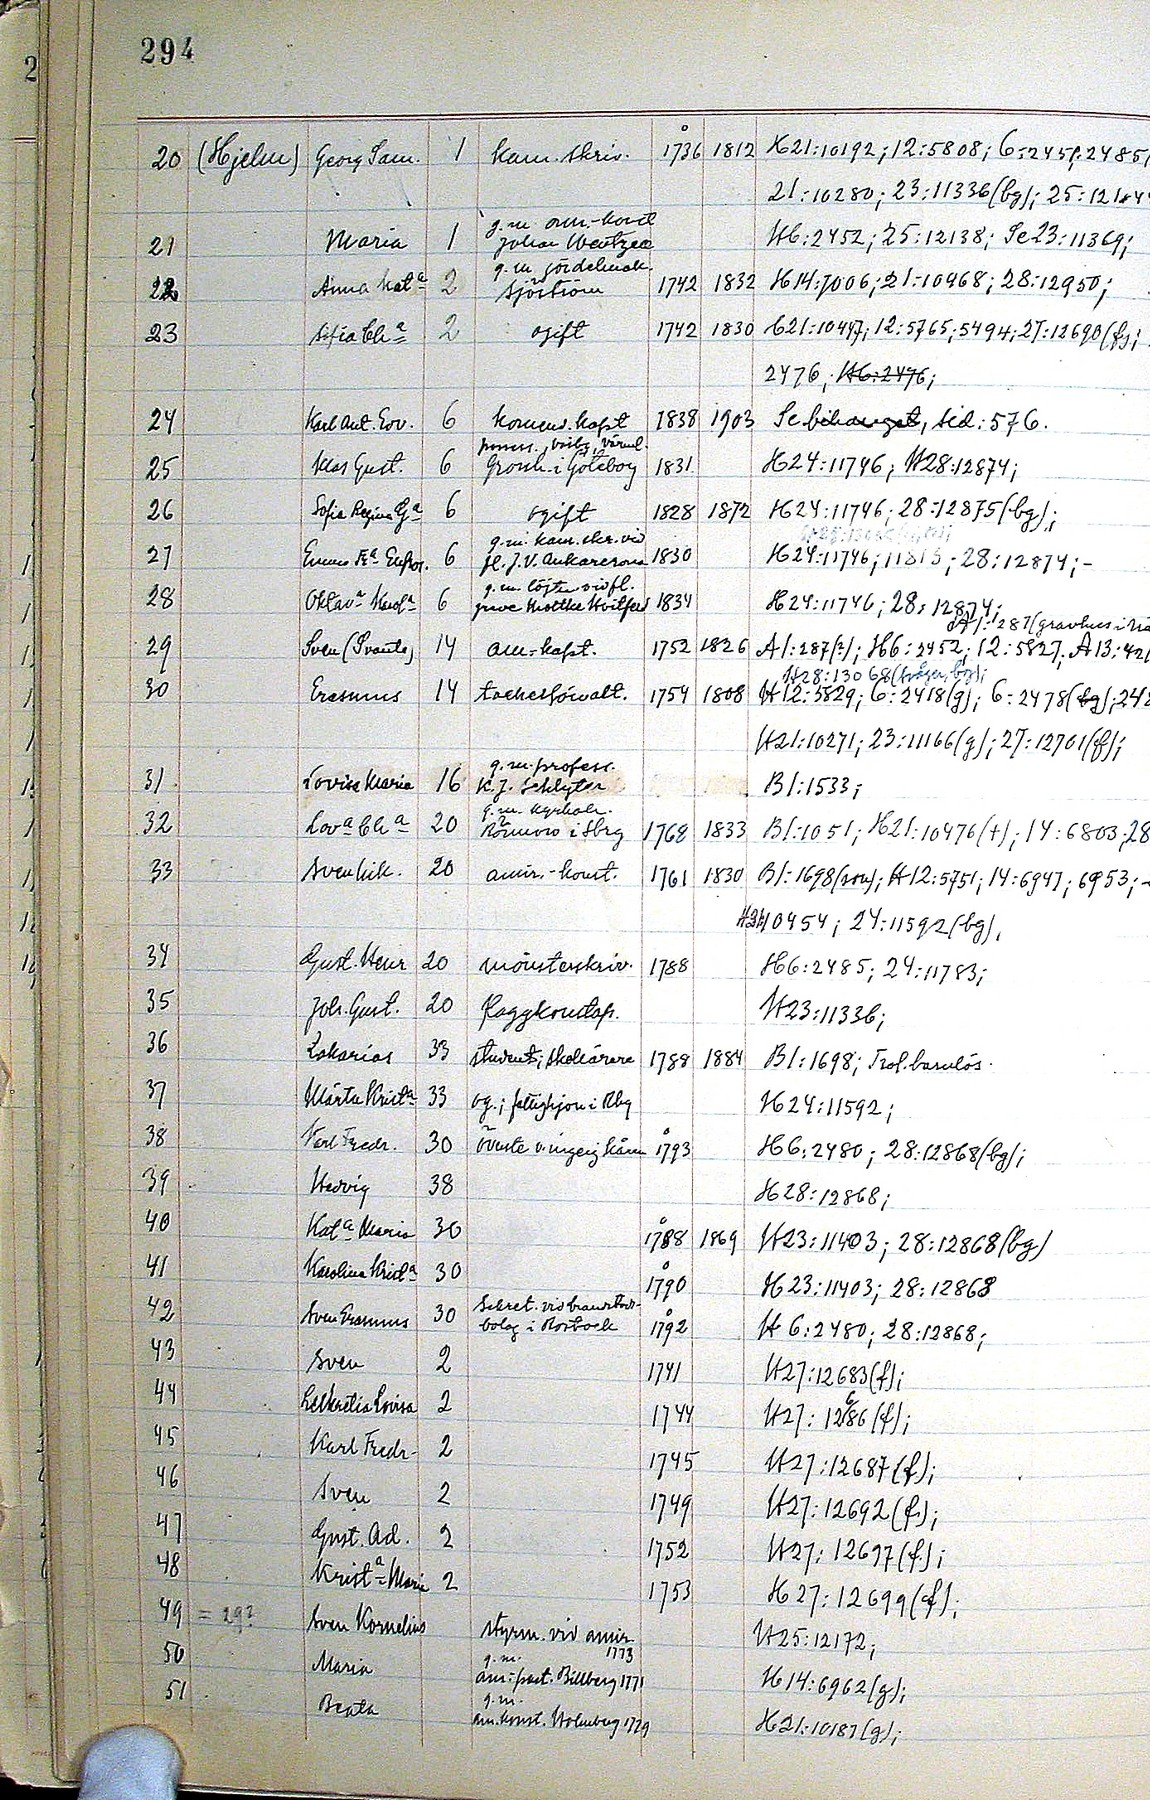 294
20 (Hjelm) Georg Sam. 1 kam. skriv. 1736 1812 H21:10192; 12:5808; 6:2451; 2485;
21:10280; 23:11336(bg); 25:121
g.m. am.-konst
21 Maria 1 Johan Wentzel H6:2452; 25:12138; Se 23:11369;
g.m. gördelmak.
22 Anna Kat:a 2 Sjöström 1742 1832 H14:7006; 21:10468; 28:12950;
23 Sofia Ch:a 2 ogift 1742 1830 12:5765; 5494; 27:12690(f);
2476; H6:2476;
24 Karl Ant. Edv. 6 komend. kapt 1838 1903 Se bihanget, sid: 576.
25 Klas Gust. 6 Grosh. i Göteborg 1831 H24:11746; H28:12874;
26 Sofia Regina G:a 6 ogift 1828 1872 H24:11746; 28:12875(bg);
g.m. kam. skr. vid
27 Emma Fr:a Eufros. 6 fl. J.V. Ankarcrona 1830 H24:11746; 11813; 28:12874;-
g.m. löjtn vid fl.
28 Oktav:a Karol:a 6 greve Moltke Hvitfeld 1834 H24:11746; 28:12874;
A1:287(gravhus i
29 Sven (Svante) 14 am-kapt. 1752 1826 A1:287(?); H6:2452; 12:5827; A13:421
H28:13068(frågor, bg);
30 Erasmus 14 tackelsförvalt. 1754 1808 H12:5829; 6:2418(g); 6:2478(bg); 248
H21:10271; 23:11166(g); 27:12701(f);
g.m. profess.
31 Lovisa Maria 16 K.J. Schlyter B1:1533;
g.m. kyrkoh.
32 Lov:a Ch:a 20 i Sbrg 1768 1833 B1:1051; H21:10476(t); 14:6803; 28
33 Sven Erik. 20 amir.-konst. 1761 1830 B1:1698(son); H12:5751; 14:6947; 6953;-
H21:10454; 24:11592(bg).
34 Gust. Henr 20 mönsterskriv. 1788 H6:2485; 24:11783;
35 Joh. Gust. 20 flaggkonstap. H23:11336;
36 Zakarias 33 student; skollärare 1788 1884 B1:1698; Trol. barnlös.
37 Märta Krist:a 33 og.; fattighjon i Rby H24:11592;
38 Karl Fredr. 30 överste v. ingenjkåren 1793 H6:2480; 28:12868(bg);
39 Hedvig 38 H28:12868;
40 Kat:a Maria 30 1788 1869 H23:11403; 28:12868(bg)
41 Karolina Krist:a 30 1790 H23:11403; 28:12868
42 Sven Erasmus 30 Sekret. vid brandförs-
bolag i Rostock 1792 H6:2480; 28:12868;
43 Sven 2 1741 H27:12683(f);
6
44 Lukretia Lovisa 2 1744 H27:1286(f);
45 Karl Fredr 2 1745 H27:12687(f);
46 Sven 2 1749 H27:12692(f);
47 Gust. Ad. 2 1752 H27:12697(f);
48 Krist:a Maria 2 1753 H27:12699(f);
49 = 29? Sven Kornelius styrm. vid amir. 1773 H25:12172;
g.m.
50 Maria am:-past. Billberg 1771 H14:6962(g);
g.m.
51 Beata am.konst. Holmberg 1729 H21:10187(g);